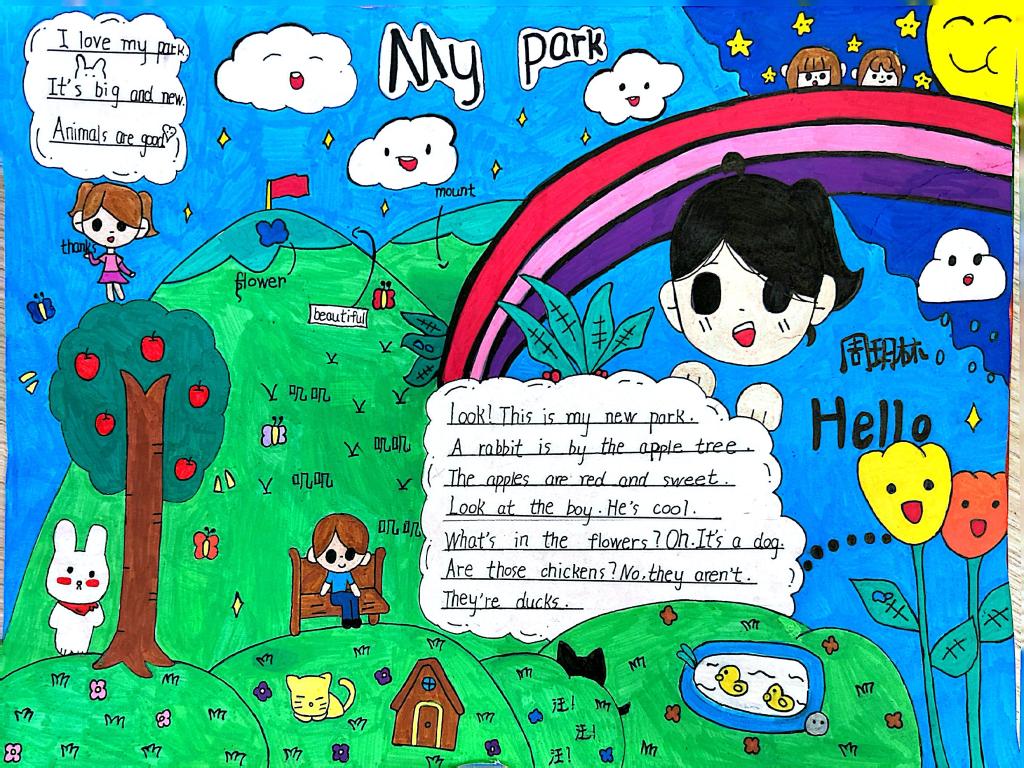 My park
I love my park.
It's big and new.
Animals are good
thanks
mount
flower
beautiful
叽叽
叽叽
叽叽
叽叽
Hello
Look! This is my new park.
A rabbit is by the apple tree.
The apples are red and sweet.
Look at the boy. He's cool.
What's in the flowers? Oh. It's a dog.
Are those chickens? No, they aren't.
They're ducks.
汪!
汪!
汪!